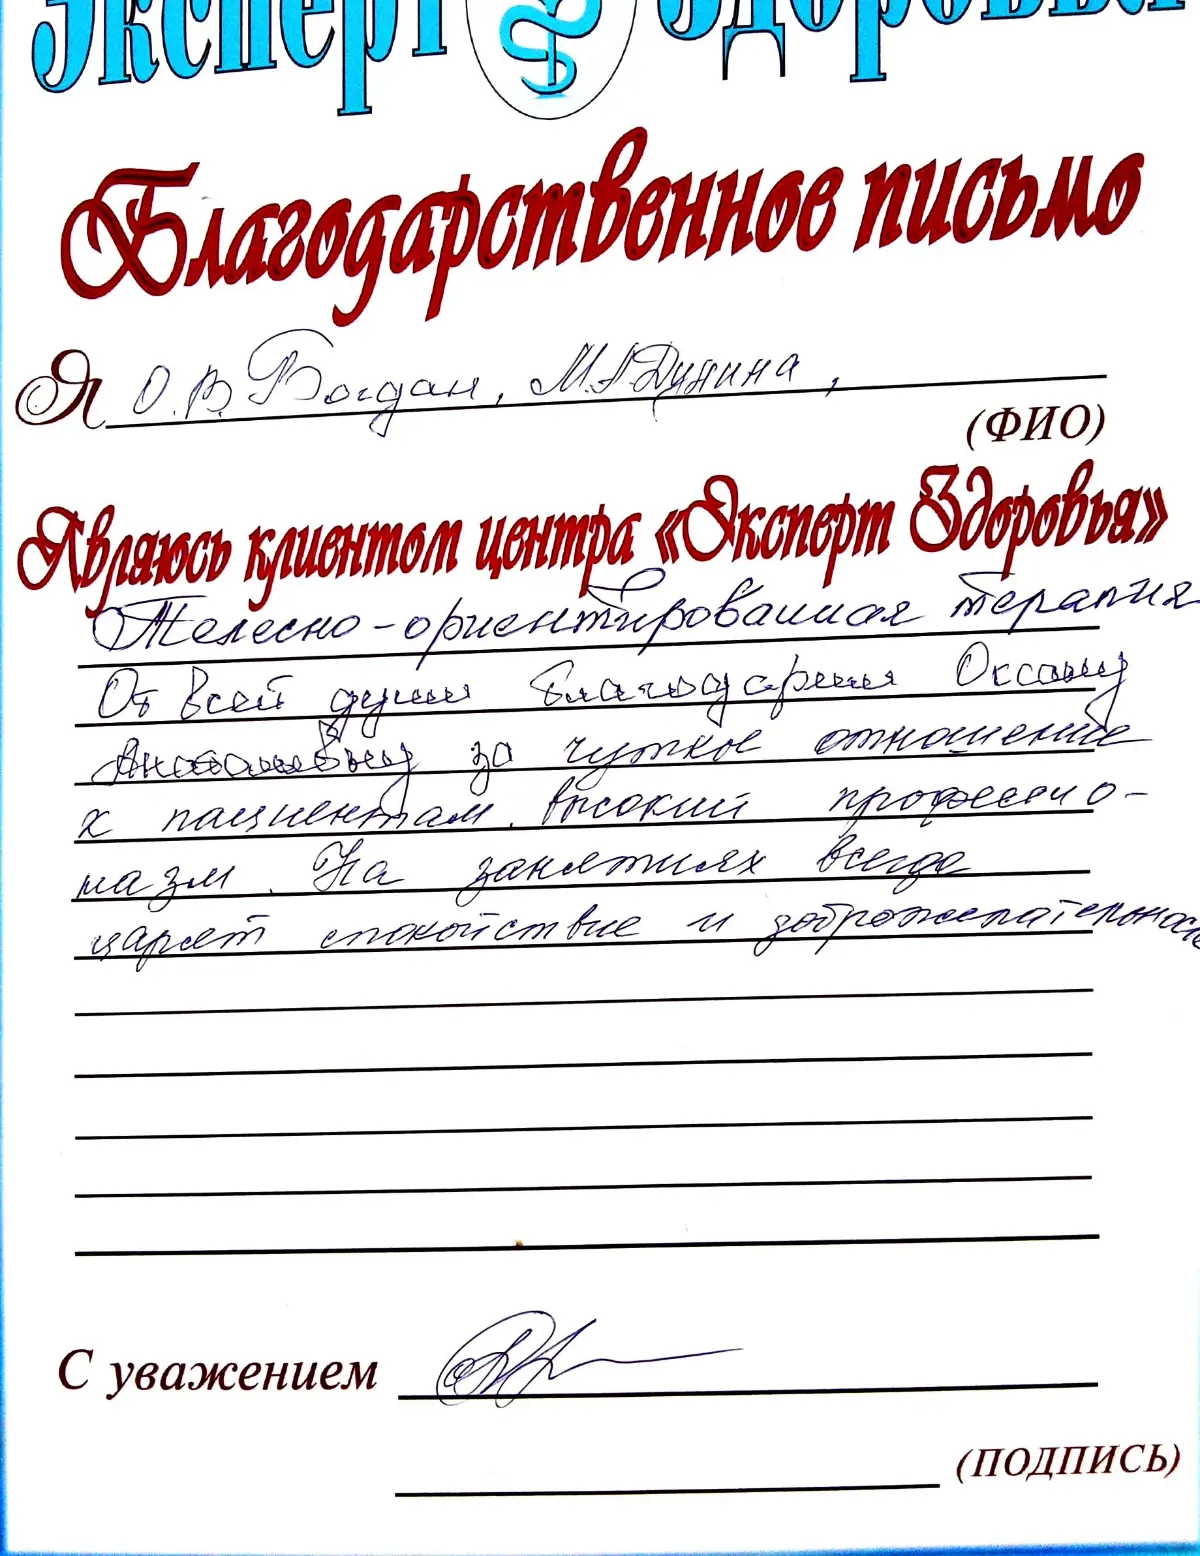 Эксперт Здоровья
Благодарственное письмо
Я О.В. Богдан, М.А Дунина,
(ФИО)
Являюсь клиентом центра «Эксперт Здоровья»
Телесно-ориентированная терапия
От всей души благодарим Оксану
Анатольевну за чуткое отношение
к пациентам. высокий профессио-
нализм. На занятиях всегда
царят спокойствие и доброжелательность
С уважением
(ПОДПИСЬ)